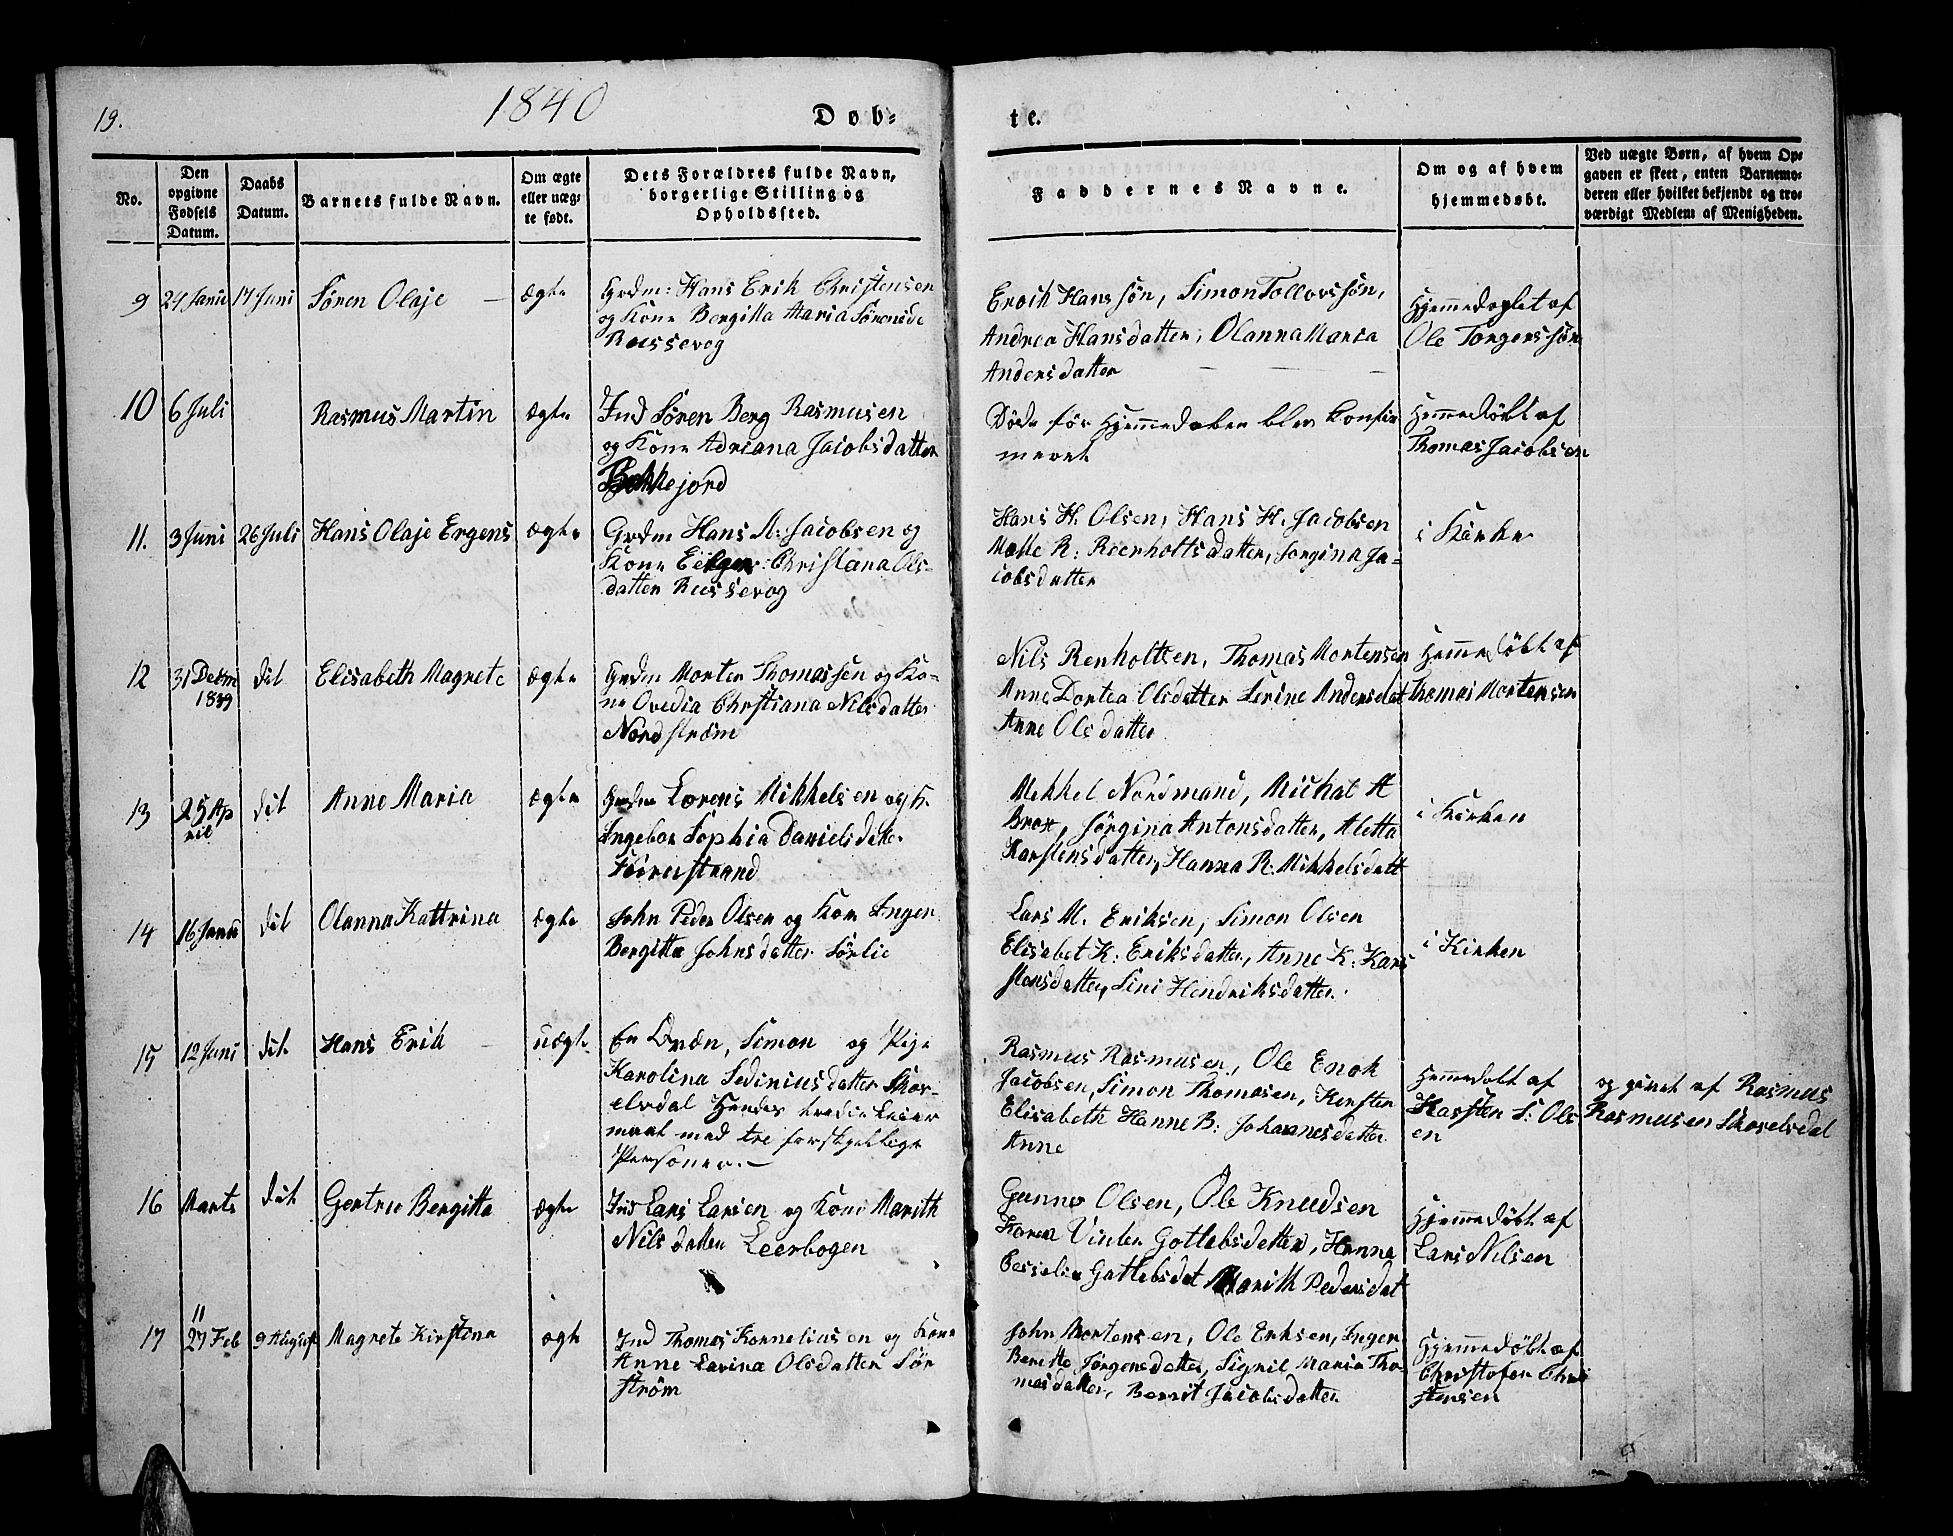 19.
1840
Døb-
te.
No.
Den
opgivne
Fødsels
Datum.
Daabs
Datum.
Barnets fulde Navn.
Om ægte
eller uæg-
te født.
Dets Forældres fulde Navn,
borgerlige Stilling og
Opholdssted.
Faddernes Navne.
Om og af hvem
hjemmedøbt.
Ved uægte Børn, af hvem Op-
gaven er skeet, enten Barnemo-
deren eller hvilket bekjendt og tro-
værdigt Medlem af Menigheden.
9
24 Janu
17 Juni
Søren Olaje
ægte
Grdm: Hans Erik Christensen
og Kone Bergitta Maria
Russevog
Hans søn, Simon Tollovssøn,
Andrea Hansdatter, Olanna Maria
Andersdatter
af
Ole Torgerssøn
10
6 Juli
Rasmus Martin
ægte
Ind Søren Berg Rasmusen
og Kone Adriana Jacobsdatter
Bakkejord
Døde før Hjemmedaben blev Confir
meret
Hjemmedöbt af
Thomas Jacobsen
11.
3 Juni
26 Juli
Hans Olaje Ergens
ægte
Grdm Hans A: Jacobsen og
Kone Christiana Ols-
datter Russevog
Hans H. Olsen, Hans H. Jacobsen
Mette R: Reenholtsdatter, Jorgina Ja-
cobsdatter
i Kirke
12
31 Debm
1839
dit
Elisabeth Magrete
ægte
Grdm Morten Thomassen og Ko-
ne Ovedia Christiana Nilsdatter
Nordström
Nils Renholtsen, Thomas Mortensen
Anne Dortea Olsdatter Serine Andersdat
Anne Olsdatter
Hjemmedöbt af
Thomas Mortensen
13
25 Ap
ril
dit
Anne Maria
ægte
Grdm Lorens Mikkelsen og K.
Ingebor Sophia Danielsdatter
Mekkel Nordmand, Michal A
Brox, Jörgina Antonsdatter, Aletta
Karstensdatter, Hanna R: Mikkelsdatt
i Kirken
14
16 Janu
dit
Olanna Kattrina
ægte
John Peder Olsen og Kone Inger
Bergitta Johnsdatter Sörlie
Lars M. Eriksen, Simon Olsen
Elisabet K: Eriksdatter, Anne K: Kar
stensdatter, Sini Hendriksdatter.
i Kirken
15
12 Juni
dit
Hans Erik
uægte
En Simon og Pige
Karolina Sediniusdatter
Hendes tredie Leier
maal med tre forskjellige
Personer.
Rasmus Rasmusen, Ole Enok
Jacobsen, Simon Thomasen, Kersten
Elisabeth Hanne B: Johannesdatter
Anne
Hjemmedøbt af
Karsten S: Ols
en
og givet af Rasmus
Rasmusen
16
Marts
dit
Gertrue Bergitta
ægte
Ind Lars Larsen og Kone Marith
Nilsdatter Leerbogen
Gunner Olsen, Ole Knudsen
Karen Vinter Gotlebsdatter, Hanne
Gatlebsdat Marith Pedersdat
Hjemmedöbt af
Lars Nilsen
17
11
27 Feb
9 August
Magrete Kirstina
ægte
Ind Thomas Kornelius en og Kone
Anne Lavina Olsdatter Sör
ström
John Mortensen, Ole Eriksen, Inger
Beritte Jörgensdatter, Sigril Maria Tho-
masdatter, Berrit Jacobsdatter
Hjemmedöbt af
Christofer Chri
stensen